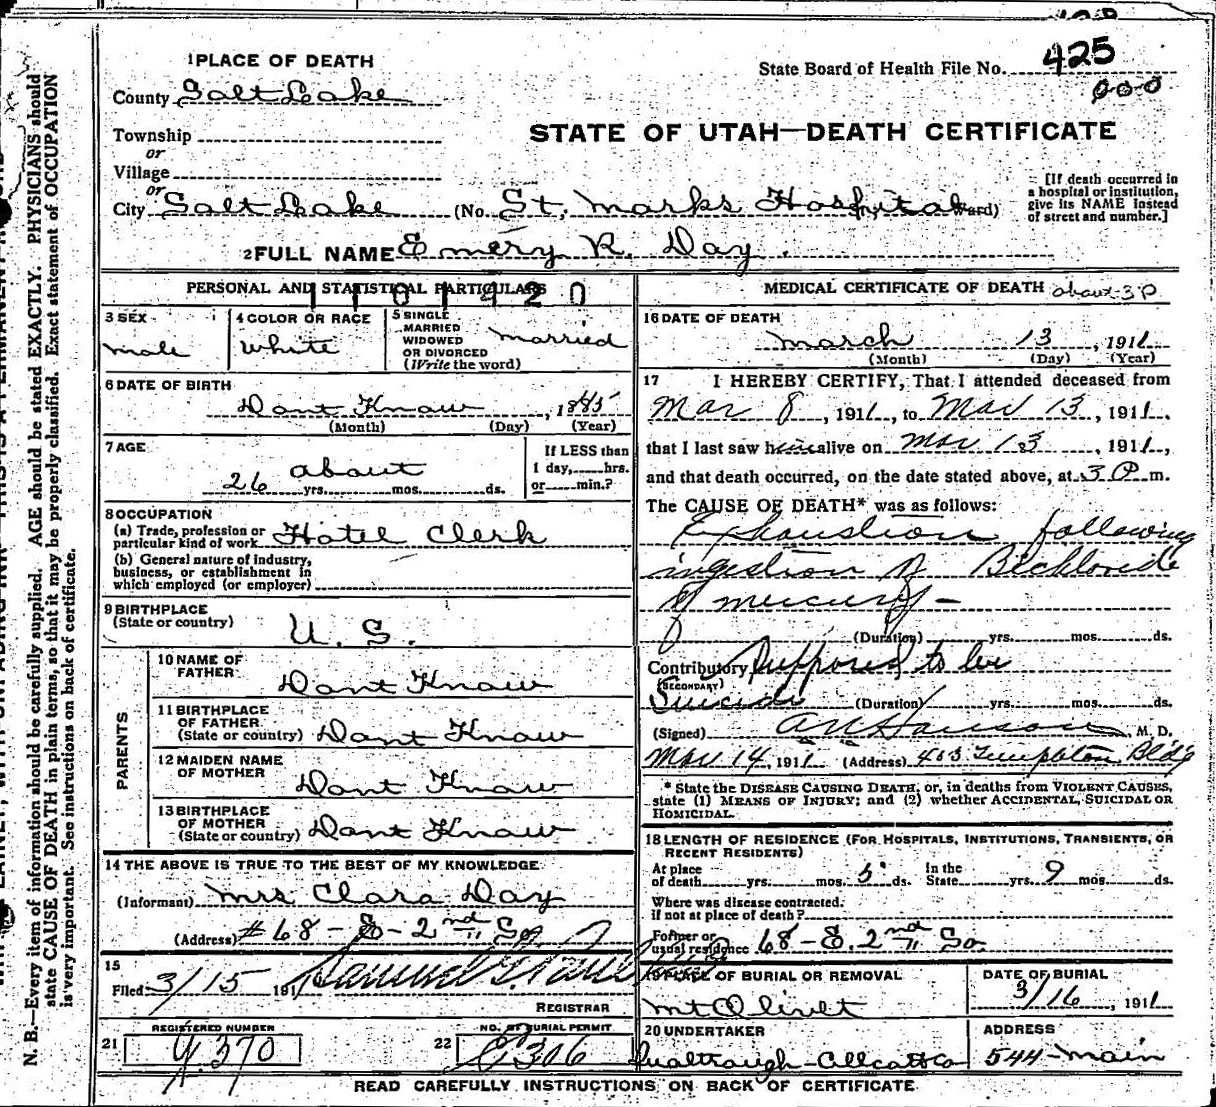 1 PLACE OF DEATH
State Board of Health File No. 425
000
County Salt Lake
STATE OF UTAH—DEATH CERTIFICATE
Township
or
Village
or
City Salt Lake (No. St. Marks Hospital Ward)
[If death occurred in
a hospital or institution,
give its NAME instead
of street and number.]
2 FULL NAME Emery R. Day
PERSONAL AND STATISTICAL PARTICULARS
3 SEX
male
4 COLOR OR RACE
White
5 SINGLE
MARRIED
WIDOWED
OR DIVORCED
(Write the word)
married
6 DATE OF BIRTH
Dont Know, 1885
(Month) (Day) (Year)
7 AGE
about
26 yrs. mos. ds.
If LESS than
1 day, hrs.
or min.?
8 OCCUPATION
(a) Trade, profession or
particular kind of work Hotel Clerk
(b) General nature of industry,
business, or establishment in
which employed (or employer)
9 BIRTHPLACE
(State or country)
U. S.
PARENTS
10 NAME OF
FATHER
Dont Know
11 BIRTHPLACE
OF FATHER
(State or country) Dont Know
12 MAIDEN NAME
OF MOTHER
Dont Know
13 BIRTHPLACE
OF MOTHER
(State or country) Dont Know
14 THE ABOVE IS TRUE TO THE BEST OF MY KNOWLEDGE
(Informant) Mrs Clara Day
(Address) #68-E-2nd So.
15
Filed 3/15 191
REGISTRAR
REGISTERED NUMBER
21
NO. OF BURIAL PERMIT
22
MEDICAL CERTIFICATE OF DEATH about 3 P
16 DATE OF DEATH
March 13, 1911
(Month) (Day) (Year)
17 I HEREBY CERTIFY, That I attended deceased from
Mar 8, 1911, to Mar 13, 1911,
that I last saw him alive on Mar 13, 1911,
and that death occurred, on the date stated above, at 3 P m.
The CAUSE OF DEATH* was as follows:
Exhaustion following
ingestion of Bichloride
of mercury—
(Duration) yrs. mos. ds.
Contributory Supposed to be
(SECONDARY)
Suicide (Duration) yrs. mos. ds.
(Signed) M. D.
Mar 14, 1911 (Address) 403 Templeton Bldg
* State the DISEASE CAUSING DEATH, or, in deaths from VIOLENT CAUSES,
state (1) MEANS OF INJURY; and (2) whether ACCIDENTAL, SUICIDAL OR
HOMICIDAL.
18 LENGTH OF RESIDENCE (FOR HOSPITALS, INSTITUTIONS, TRANSIENTS, OR
RECENT RESIDENTS)
At place
of death yrs. mos. 5 ds. In the
State yrs. 9 mos. ds.
Where was disease contracted.
if not at place of death?
Former or
usual residence 68-E. 2nd So.
19 PLACE OF BURIAL OR REMOVAL
Mt Olivet
DATE OF BURIAL
3/16, 1911
20 UNDERTAKER
ADDRESS
544-Main
READ CAREFULLY INSTRUCTIONS ON BACK OF CERTIFICATE
N. B.—Every item of information should be carefully supplied. AGE should be stated EXACTLY. PHYSICIANS should
state CAUSE OF DEATH in plain terms, so that it may be properly classified. Exact statement of OCCUPATION
is very important. See instructions on back of certificate.